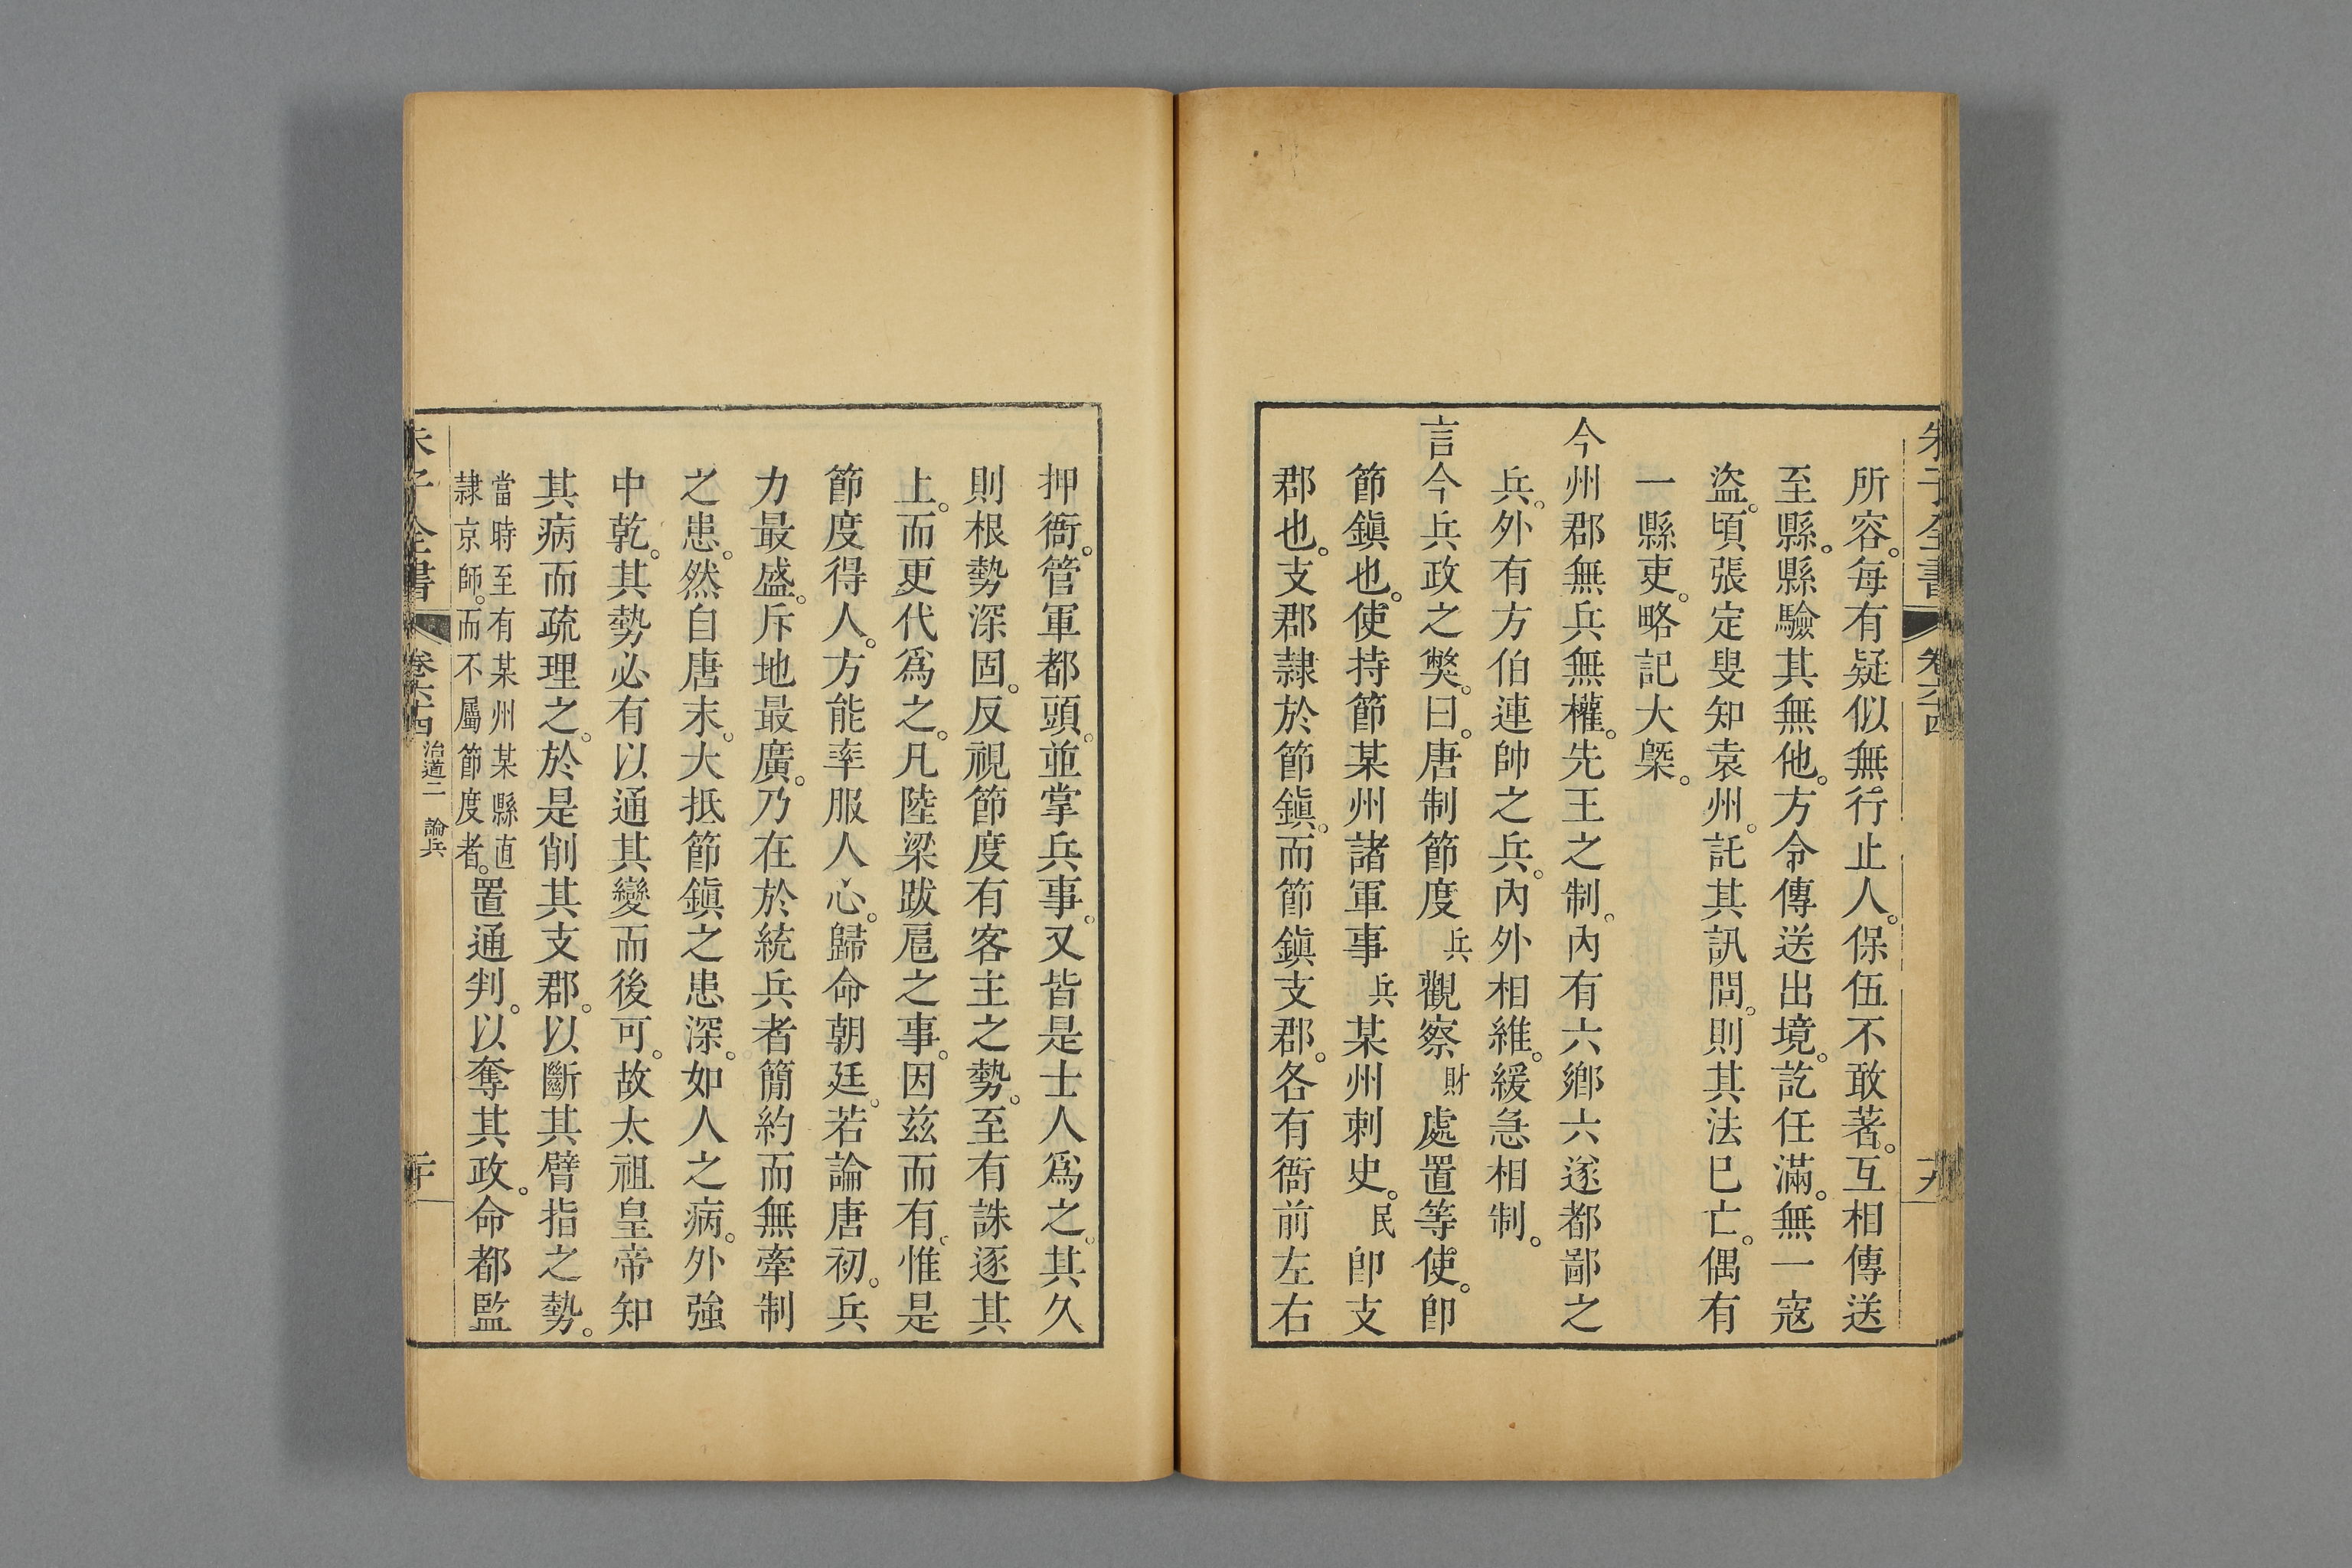 朱子全書 卷六十四 十九
所容。每有疑似無行止人。保伍不敢著。互相傳送
至縣。縣驗其無他。方令傳送出境。訖任滿。無一寇
盜。頃張定叟知袁州。託其訊問。則其法已亡。偶有
一縣吏。略記大槩。
今州郡無兵無權。先王之制。內有六鄉六遂都鄙之
兵。外有方伯連帥之兵。內外相維。緩急相制。
言今兵政之獘。曰。唐制節度兵觀察財處置等使。卽
節鎭也。使持節某州諸軍事兵某州刺史。民卽支
郡也。支郡隷於節鎭。而節鎭支郡。各有衙前左右
押衙。管軍都頭。並掌兵事。又皆是士人爲之。其久
則根勢深固。反視節度有客主之勢。至有誅逐其
上。而更代爲之。凡陸梁跋扈之事。因兹而有。惟是
節度得人。方能率服人心。歸命朝廷。若論唐初。兵
力最盛。斥地最廣。乃在於統兵者簡約而無牽制
之患。然自唐末。大抵節鎭之患深。如人之病。外強
中乾。其勢必有以通其變而後可。故太祖皇帝知
其病而疏理之。於是削其支郡。以斷其臂指之勢。
當時至有某州某縣直
隷京師。而不屬節度者。
置通判。以奪其政。命都監
朱子全書 卷六十四 治道二 論兵 二十